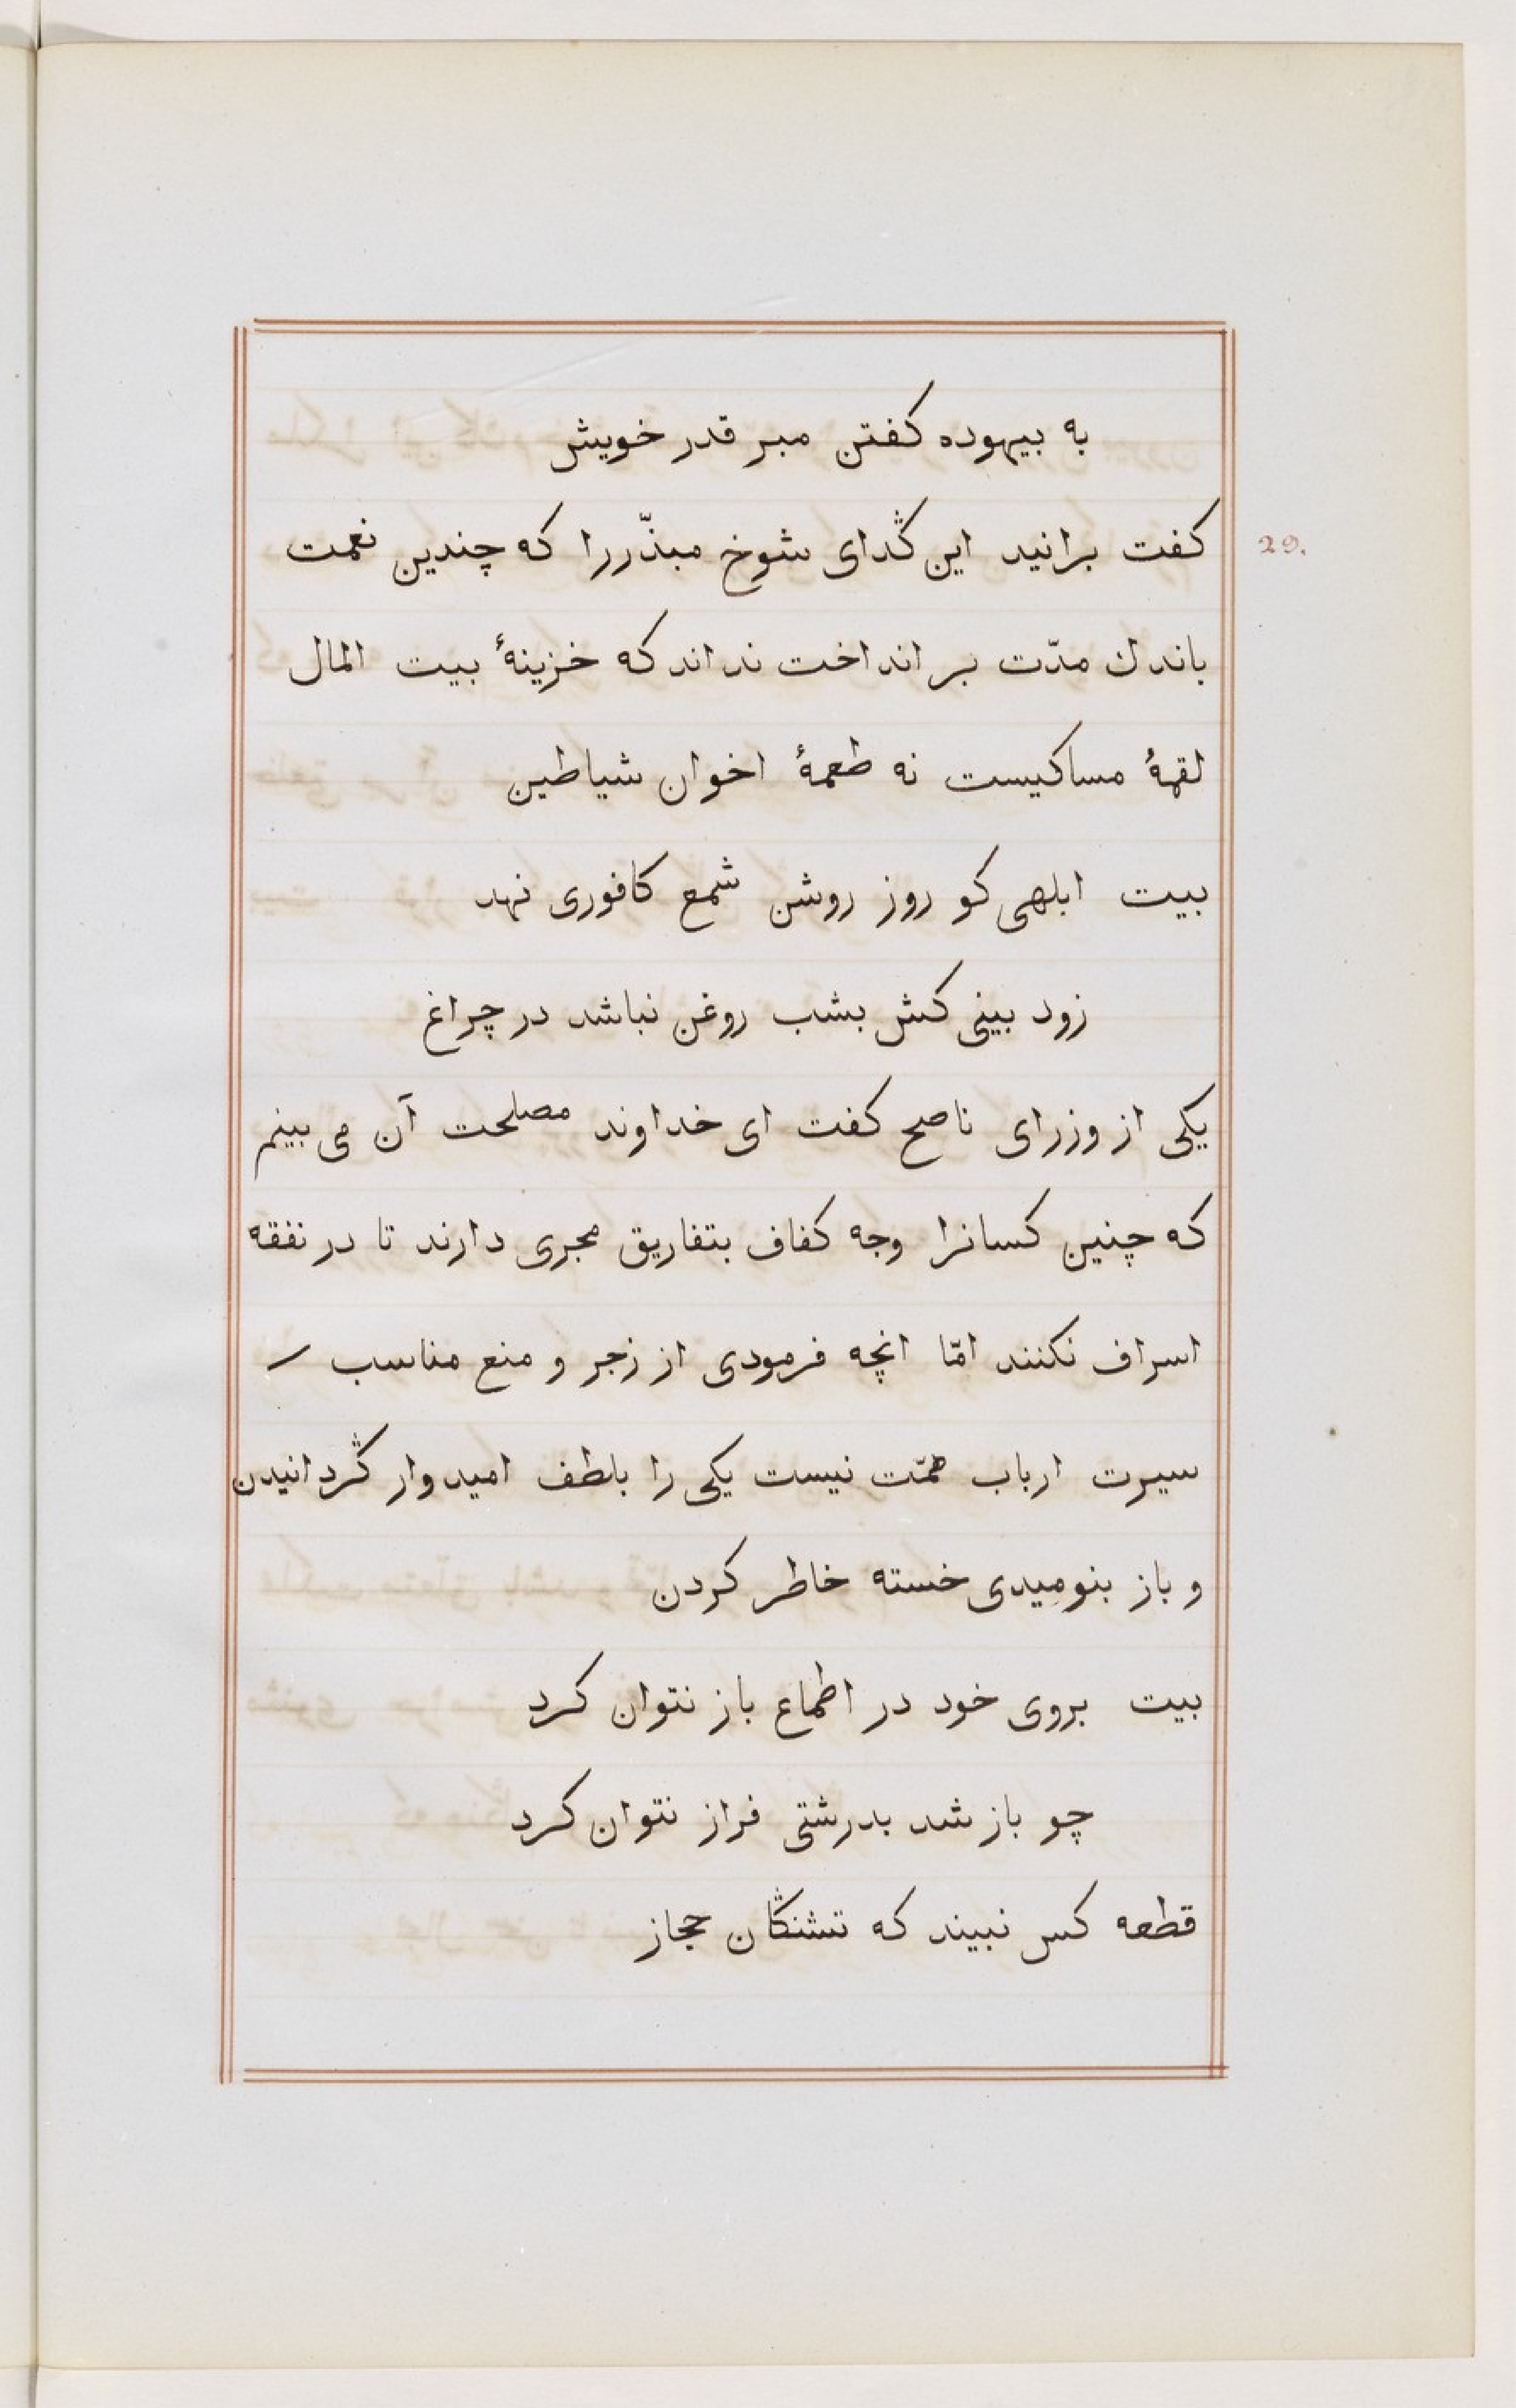 به بیهوده کفتن مبر قدر خویش
29.
کفت برانید این گدای شوخ مبذّررا که چندین نعمت
باندك مدّت بر انداخت نداند که خزینهٔ بیت المال
لقمهٔ مساکیست نه طعمهٔ اخوان شیاطین
بیت ابلهی کو روز روشن شمع کافوری نهد
زود بینی کش بشب روغن نباشد در چراغ
یکی از وزرای ناصح کفت ای خداوند مصلحت آن می بینم
که چنین کسانرا وجه کفاف بتفاریق مجری دارند تا در نفقه
اسراف نکنند امّا انچه فرمودی از زجر و منع مناسب
سیرت ارباب همّت نیست یکی را بلطف امیدوار گردانیدن
و باز بنومیدی خسته خاطر کردن
بیت بروی خود در اطماع باز نتوان کرد
چو باز شد بدرشتی فراز نتوان کرد
قطعه کس نبیند که تشنگان حجاز